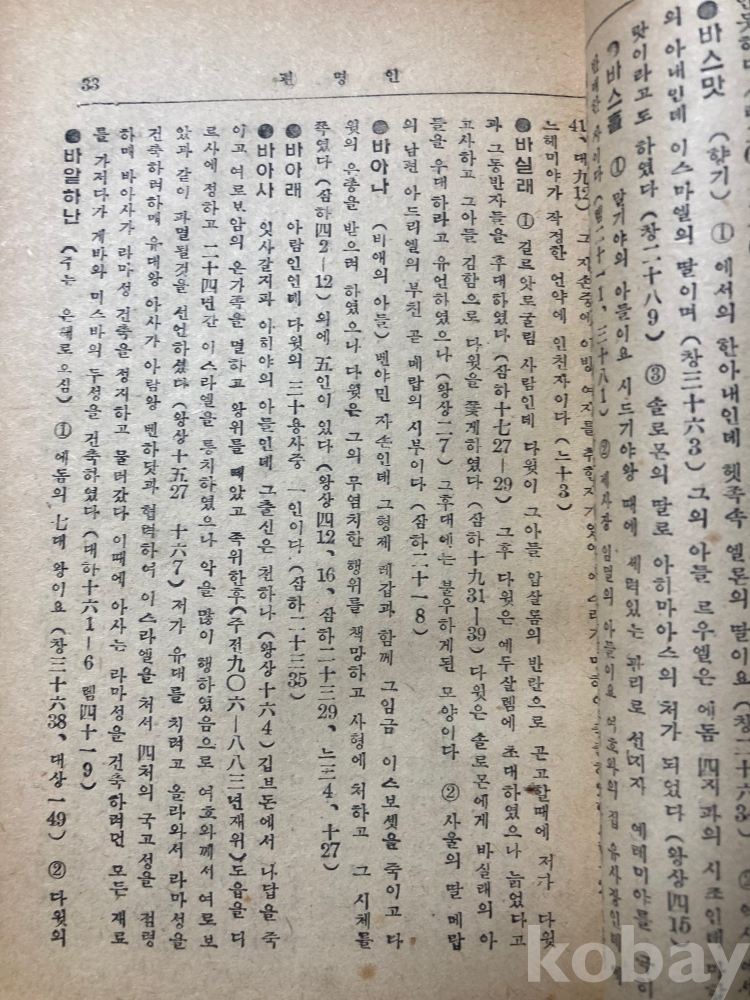 33 편 명 인
●바스맛 (향기) ① 에서의 한아내인데 헷족속 엘론의 딸이요 (창二十六34)
의 아내인데 이스마엘의 딸이며 (창三十六3) 그의 아들 르우엘은 에돔 四지파의 시조인데
맛이라고도 하였다 (창二十八9) ③ 솔로몬의 딸로 아히마아스의 처가 되었다 (왕상四15)
●바스훌 ① 말기야의 아들이요 시드기야왕 때에 세력있는 관리로 선지자 예레미야를
② 제사장 임멜의 아들이요 여호와의 집 유사장인데
41、대九12) 그 자손중에 이방 여자를 취한
느헤미야가 작정한 언약에 인친자이다 (느十3)
●바실래 ① 길르앗로굴림 사람인데 다윗이 그아들 압살롬의 반란으로 곤고할때에 저가 다윗
과 그동반자들을 후대하였다 (삼하十七27—29) 그후 다윗은 예루살렘에 초대하였으나 늙었다고
고사하고 그아들 김함으로 다윗을 쫓게하였다 (삼하十九31—39) 다윗은 솔로몬에게 바실래의 아
들을 우대하라고 유언하였으나 (왕상二7) 그후대에는 불우하게된 모양이다 ② 사울의 딸 메랍
의 남편 아드리엘의 부친 곧 메랍의 시부이다 (삼하二十一8)
●바아나 (비애의 아들) 벤야민 자손인데 그형제 레갑과 함께 그임금 이스보셋을 죽이고 다
윗의 은총을 받으려 하였으나 다윗은 그의 무염치한 행위를 책망하고 사형에 처하고 그 시체를
쪽였다 (삼하四2—12) 외에 五인이 있다 (왕상四12、16、삼하二十三29、느三4、十27)
●바아래 아람인인데 다윗의 三十용사중 一인이다 (삼하二十三35)
●바아사 잇사갈지파 아히야의 아들인데 그출신은 천하나 (왕상十六4) 깁브돈에서 나답을 죽
이고 여로보암의 온가족을 멸하고 왕위를 빼았고 즉위한후 (주전九〇六—八八三년재위) 도읍을 디
르사에 정하고 二十四년간 이스라엘을 통치하였으나 악을 많이 행하였음으로 여호와께서 여로보
암과 같이 파멸될것을 선언하셨다 (왕상十五27 十六7) 저가 유대를 치려고 올라와서 라마성을
건축하려하매 유대왕 아사가 아람왕 벤하닷과 협력하여 이스라엘을 쳐서 四처의 국고성을 점령
하매 바아사가 라마성 건축을 정지하고 물러갔다 이때에 아사는 라마성을 건축하려던 모든 재료
를 가저다가 게바와 미스바의 두성을 건축하였다 (대하十六1—6 렘四十一9)
●바알하난 (주는 은혜로 오심) ① 에돔의 七대 왕이요 (창三十六38、대상一49) ② 다윗의
kobay